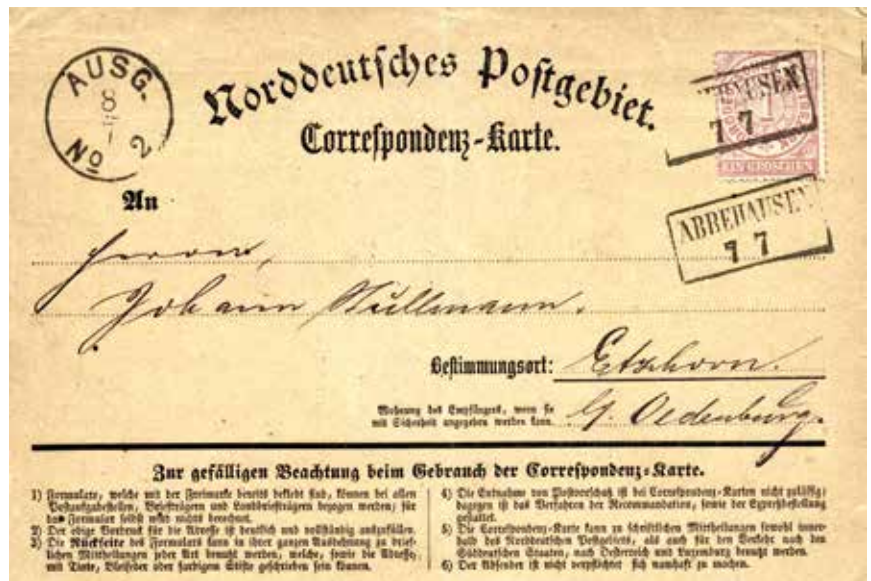 AUSG.
8
7
No 2
Norddeutsches Postgebiet.
Correspondenz-Karte.
EIN GROSCHEN
7 7
ABBEHAUSEN
7 7
An
Herrn,
Johann
Bestimmungsort: Etzhorn.
Wohnung des Empfängers, wenn sie
mit Sicherheit angegeben werden kann.
Oldenburg.
Zur gefälligen Beachtung beim Gebrauch der Correspondenz-Karte.
1) Formulare, welche mit der Freimarke bereits beklebt sind, können bei allen
Postanstalten, Briefträgern und Landbriefträgern bezogen werden; für
das Formular selbst wird nichts berechnet.
2) Der obige Vordruck für die Adresse ist deutlich und vollständig auszufüllen.
3) Die Rückseite des Formulars kann in ihrer ganzen Ausdehnung zu brief-
lichen Mittheilungen jeder Art benutzt werden, welche, sowie die Adresse,
mit Tinte, Bleifeder oder farbigem Stifte geschrieben sein können.
4) Die Entnahme von Postvorschuß ist bei Correspondenz-Karten nicht zulässig;
dagegen ist das Verfahren der Recommandation, sowie der Expreßbestellung
gestattet.
5) Die Correspondenz-Karte kann zu schriftlichen Mittheilungen sowohl inner-
halb des Norddeutschen Postgebiets, als auch für den Verkehr nach den
Süddeutschen Staaten, nach Oesterreich und Luxemburg benutzt werden.
6) Der Absender ist nicht verpflichtet sich namhaft zu machen.